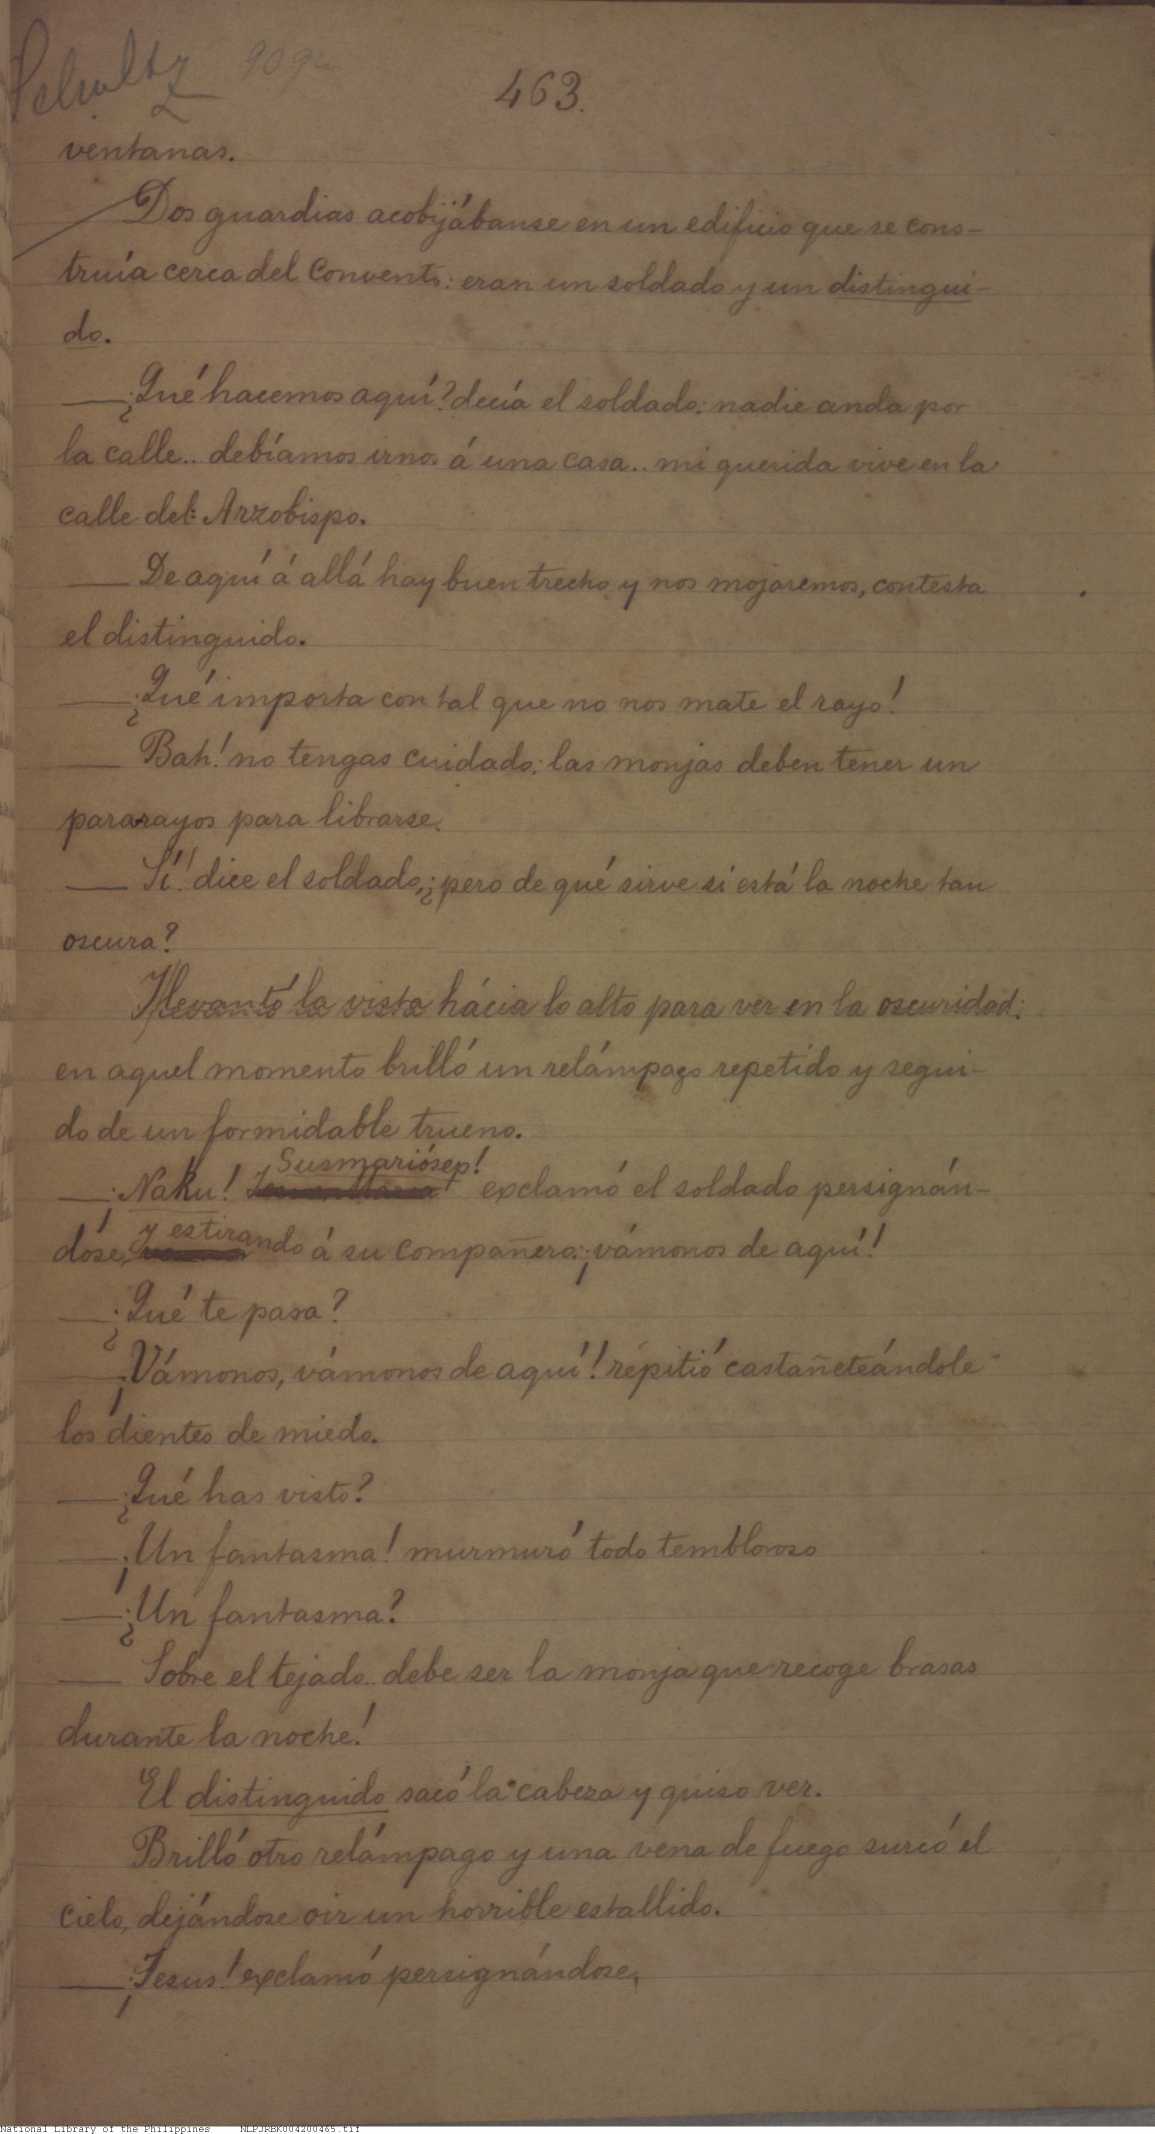 Schultz
463.
ventanas.
Dos guardias acobijábanse en un edificio que se cons-
truía cerca del Convento: eran un soldado y un distingui-
do.
— ¿Qué hacemos aquí? decía el soldado: nadie anda por
la calle.. debíamos irnos á una casa.. mi querida vive en la
calle del Arzobispo.
— De aquí á allá hay buen trecho y nos mojaremos, contesta
el distinguido.
— ¿Qué importa con tal que no nos mate el rayo!
— Bah! no tengas cuidado; las monjas deben tener un
pararayos para librarse.
— Sí! dice el soldado, ¿pero de qué sirve si está la noche tan
oscura?
Y levantó la vista hácia lo alto para ver en la oscuridad:
en aquel momento brilló un relámpago repetido y segui-
do de un formidable trueno.
Susmariósep!
— ¡Naku! exclamó el soldado persignán-
y estirando
dose, á su compañero: ¡vámonos de aquí!
— ¿Qué te pasa?
— ¡Vámonos, vámonos de aquí! repitió castañeteándole
los dientes de miedo.
— ¿Qué has visto?
— ¡Un fantasma! murmuró todo tembloroso
— ¿Un fantasma?
— Sobre el tejado.. debe ser la monja que recoge brasas
durante la noche!
El distinguido sacó la cabeza y quiso ver.
Brilló otro relámpago y una vena de fuego surcó el
cielo, dejándose oir un horrible estallido.
— ¡Jesus! exclamó persignándose,
National Library of the Philippines NLPJRBK004200465.tif